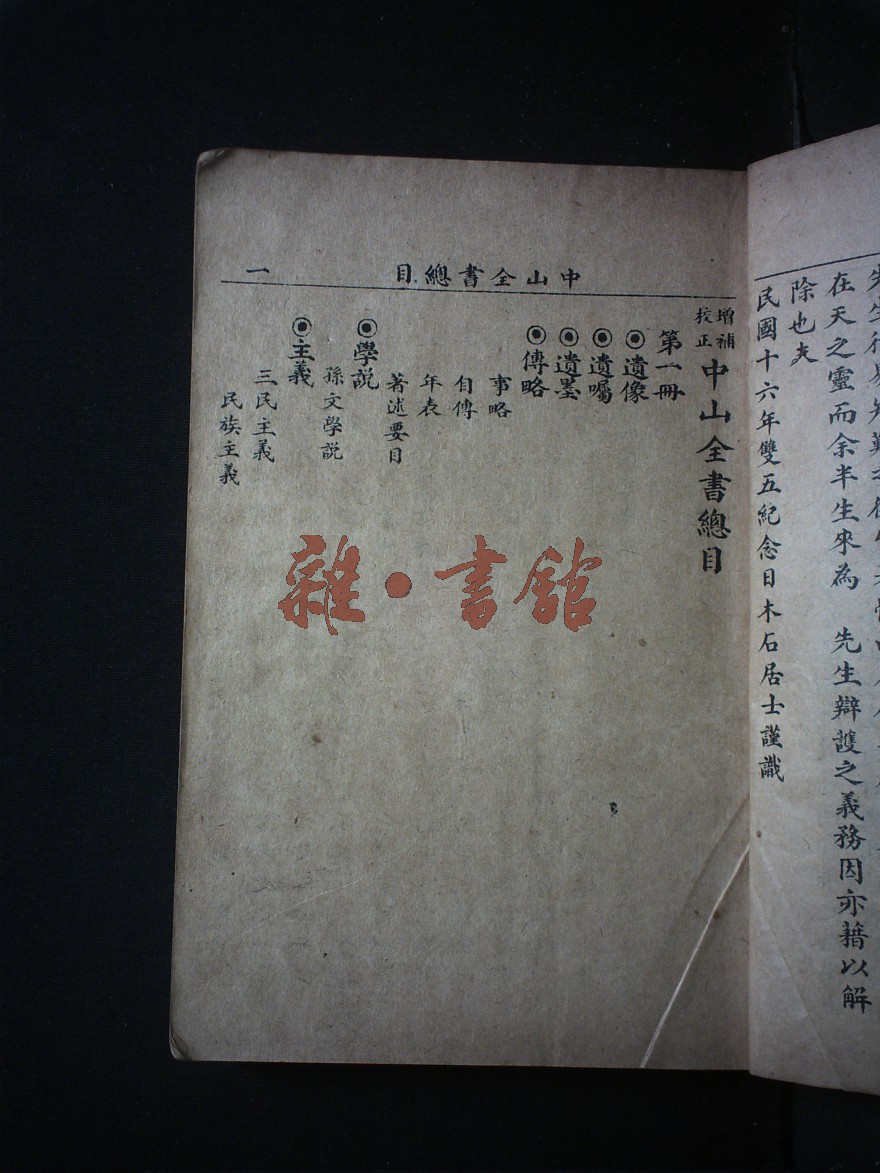 在天之靈而余半生來為　先生辯護之義務因亦藉以解
除也夫
民國十六年雙五紀念日木石居士謹識
中山全書總目
一
增補
校正
中山全書總目
第一冊
◉遺像
◉遺囑
◉遺墨
◉傳略
事略
自傳
年表
著述要目
◉學説
孫文學説
◉主義
三民主義
民族主義
雜·書館